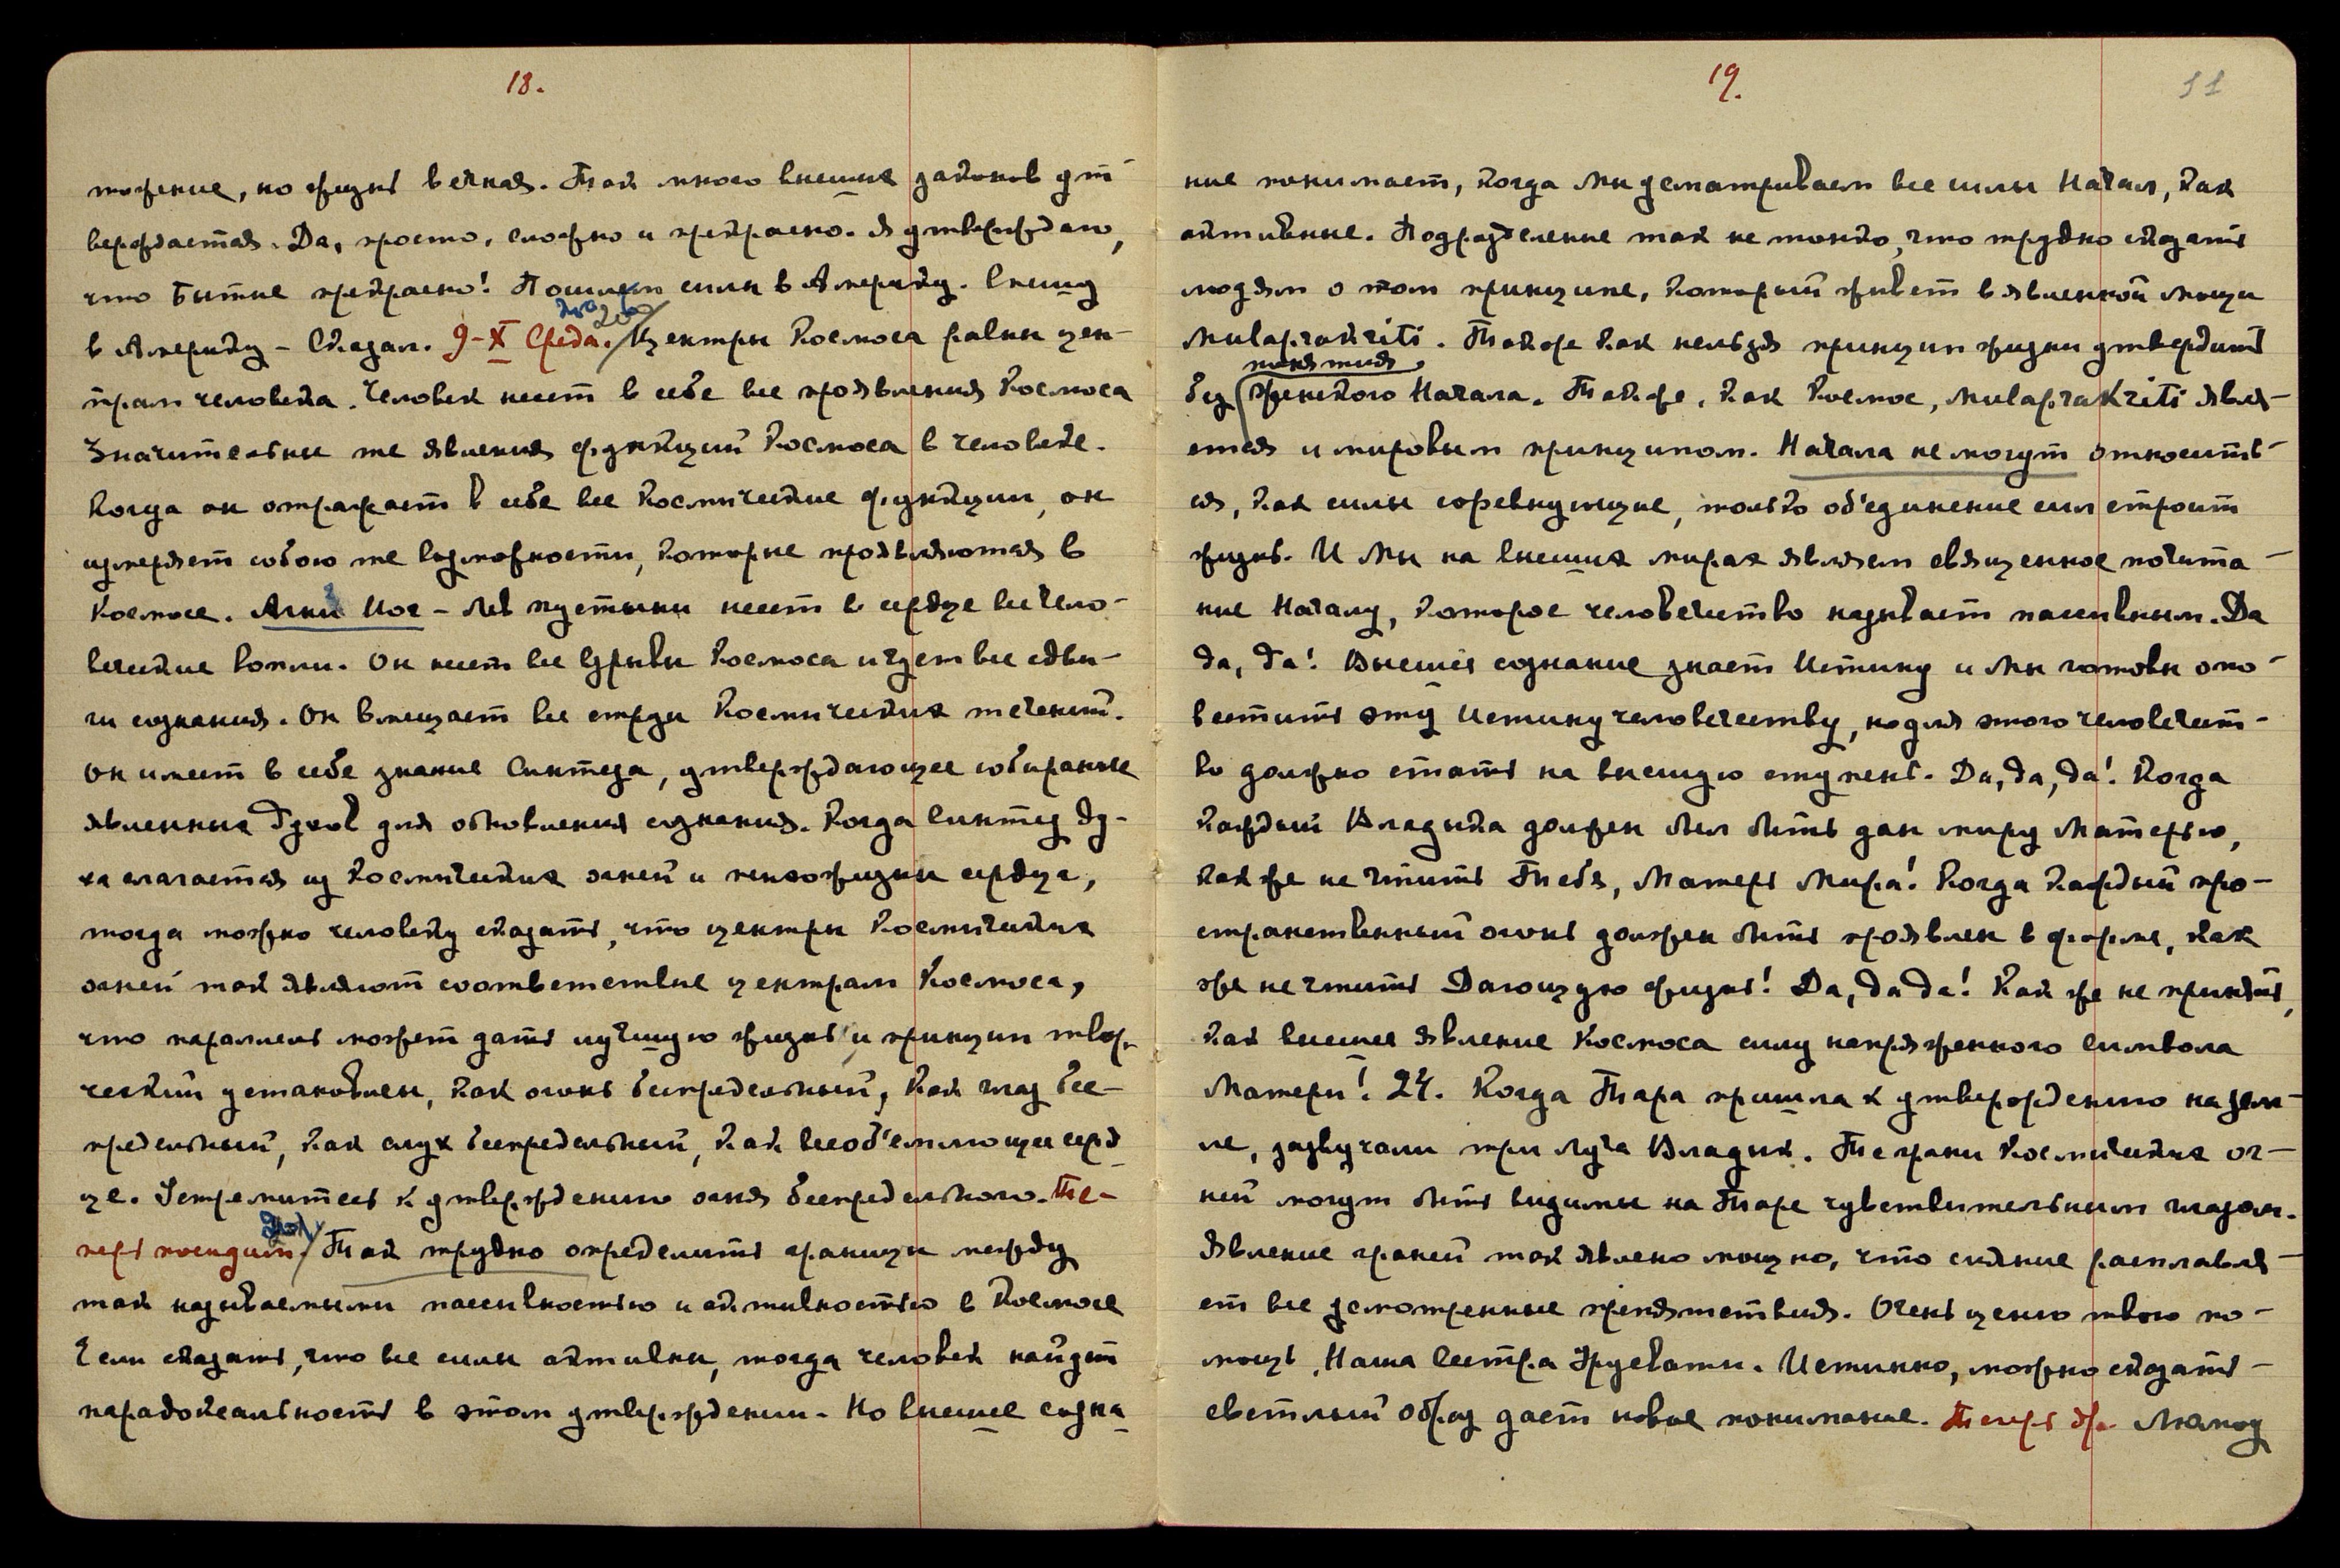 18.
тожение, но жизнь вечная. Так много высших законов ут-
верждается. Да, просто, сложно и прекрасно. Я утверждаю,
что Бытие прекрасно! Пошлем силы в Америку. Спешу
в Америку – Сказал. 9-X Среда. / Центры Космоса равны цен-
трам человека. Человек несет в себе все проявления Космоса
Значительны те явления функций Космоса в человеке.
Когда он отражает в себе все Космические функции, он
измеряет собою те возможности, которые проявляются в
Космосе. Агни Йог – Лев пустыни несет в сердце все чело-
веческие вопли. Он несет все взрывы Космоса и чует все сдви-
ги сознания. Он вмещает все струи Космических течений.
Он имеет в себе знание Синтеза, утверждающее собирание
явленных духов для обновления сознания. Когда Синтез ду-
ха слагается из Космических огней и психожизни сердца,
тогда можно человеку сказать, что центры Космических
огней так являют соответствие центрам Космоса,
что параллель может дать лучшую жизнь, и принцип твор-
ческий установлен, как огонь беспредельный, как глаз бес-
предельный, как слух беспредельный, как всеоб'емлющее серд-
це. Устремитесь к утверждению огня беспредельного. Те-
перь посидим. / Так трудно определить границы между
так называемыми пассивностью и активностью в Космосе
Если сказать, что все силы активны, тогда человек найдет
парадоксальность в этом утверждении. Но высшее созна
19.
11
ние понимает, когда мы усматриваем все силы Начал, как
активные. Подразделение так не тонко, что трудно сказать
людям о том принципе, который живет в явленной мощи
Mulaprakriti. Также как нельзя принцип жизни утвердить
понятия
без женского Начала. Также, как Космос, Mulaprakriti явля-
ется и мировым принципом. Начала не могут относить-
ся, как силы соревнующие, только об'единение сил строит
жизнь. И Мы на высших мирах являем священное почита-
ние Началу, которое человечество называет пассивным. Да
да, да! Высшее сознание знает Истину и Мы готовы опо-
вестить эту Истину человечеству, но для этого человечест-
во должно стать на высшую ступень. Да, да, да! Когда
каждый Владыка должен был быть дан миру Матерью,
как же не чтить Тебя, Матерь Мира! Когда каждый про-
странственный огонь должен быть проявлен в форме, как
же не чтить Дающую жизнь! Да, да да! Как же не принять,
как высшее явление Космоса силу напряженного символа
Матери! 24. Когда Тара пришла к утверждению на зем-
ле, зазвучали три Луча Владык. Те грани Космических ог-
ней могут быть видимы на Таре чувствительным глазом.
Явление граней так явлено мощно, что сияние расплавля-
ет все усмотренные препятствия. Очень ценю твою по-
мощь, Наша Сестра Урусвати. Истинно, можно сказать –
светлый образ дает новое понимание. Теперь